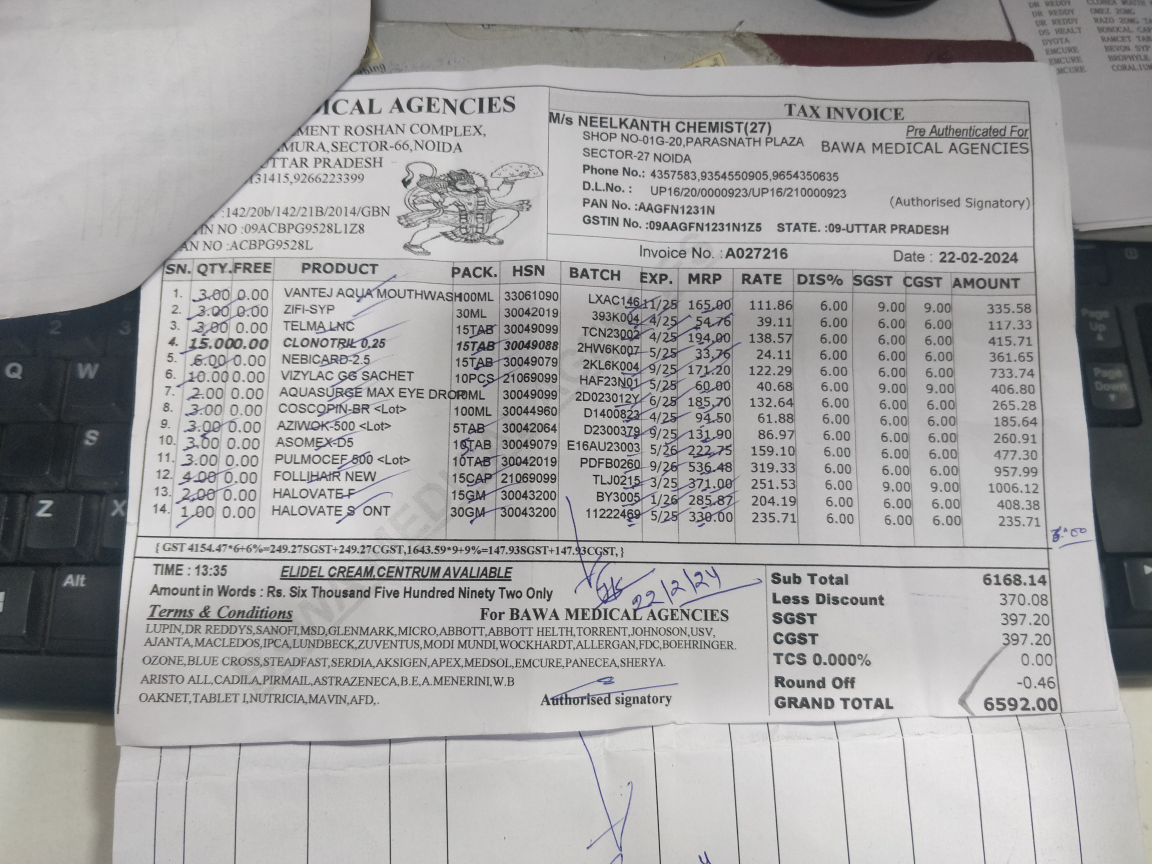 DR REDDY
DR REDDY OMEZ 20MG
DR REDDY RAZO 20MG TA
DS HEALT BONOCAL CAP
DYOTA RAMCET TAB
EMCURE BEVON SYP
EMCURE
EMCURE CORALIUM
ICAL AGENCIES
MENT ROSHAN COMPLEX,
MURA,SECTOR-66,NOIDA
UTTAR PRADESH
131415,9266223399
:142/20b/142/21B/2014/GBN
IN NO :09ACBPG9528L1Z8
AN NO :ACBPG9528L
TAX INVOICE
M/s NEELKANTH CHEMIST(27)
SHOP NO-01G-20,PARASNATH PLAZA
SECTOR-27 NOIDA
Phone No.: 4357583,9354550905,9654350635
D.L.No.: UP16/20/0000923/UP16/210000923
PAN No.:AAGFN1231N
GSTIN No.:09AAGFN1231N1Z5 STATE. :09-UTTAR PRADESH
Pre Authenticated For
BAWA MEDICAL AGENCIES
(Authorised Signatory)
Invoice No. :A027216 Date : 22-02-2024
SN. QTY. FREE PRODUCT PACK. HSN BATCH EXP. MRP RATE DIS% SGST CGST AMOUNT
1. 3.00 0.00 VANTEJ AQUA MOUTHWASH 100ML 33061090 LXAC146 11/25 165.00 111.86 6.00 9.00 9.00 335.58
2. 3.00 0.00 ZIFI-SYP 30ML 30042019 393K004 4/25 54.76 39.11 6.00 6.00 6.00 117.33
3. 3.00 0.00 TELMA LNC 15TAB 30049099 TCN23002 4/25 194.00 138.57 6.00 6.00 6.00 415.71
4. 15.00 0.00 CLONOTRIL 0.25 15TAB 30049088 2HW6K007 5/25 33.76 24.11 6.00 6.00 6.00 361.65
5. 6.00 0.00 NEBICARD-2.5 15TAB 30049079 2KL6K004 9/25 171.20 122.29 6.00 6.00 6.00 733.74
6. 10.00 0.00 VIZYLAC GG SACHET 10PCS 21069099 HAF23N01 5/25 60.00 40.68 6.00 9.00 9.00 406.80
7. 2.00 0.00 AQUASURGE MAX EYE DROP 10ML 30049099 2D023012Y 6/25 185.70 132.64 6.00 6.00 6.00 265.28
8. 3.00 0.00 COSCOPIN-BR <Lot> 100ML 30044960 D1400823 4/25 94.50 61.88 6.00 6.00 6.00 185.64
9. 3.00 0.00 AZIWOK-500 <Lot> 5TAB 30042064 D2300379 9/25 131.90 86.97 6.00 6.00 6.00 260.91
10. 3.00 0.00 ASOMEX-D5 15TAB 30049079 E16AU23003 5/26 222.75 159.10 6.00 6.00 6.00 477.30
11. 3.00 0.00 PULMOCEF 500 <Lot> 10TAB 30042019 PDFB0260 9/26 536.48 319.33 6.00 6.00 6.00 957.99
12. 4.00 0.00 FOLLIHAIR NEW 15CAP 21069099 TLJ0215 3/25 371.00 251.53 6.00 9.00 9.00 1006.12
13. 2.00 0.00 HALOVATE-F 15GM 30043200 BY3005 1/26 285.87 204.19 6.00 6.00 6.00 408.38
14. 1.00 0.00 HALOVATE S ONT 30GM 30043200 11222469 5/25 330.00 235.71 6.00 6.00 6.00 235.71
{ GST 4154.47*6+6%=249.27SGST+249.27CGST,1643.59*9+9%=147.93SGST+147.93CGST,}
TIME : 13:35 ELIDEL CREAM,CENTRUM AVALIABLE
Amount in Words : Rs. Six Thousand Five Hundred Ninety Two Only
22/2/24
Terms & Conditions For BAWA MEDICAL AGENCIES
LUPIN,DR REDDYS,SANOFI,MSD,GLENMARK,MICRO,ABBOTT,ABBOTT HELTH,TORRENT,JOHNOSON,USV,
AJANTA,MACLEDOS,IPCA,LUNDBECK,ZUVENTUS,MODI MUNDI,WOCKHARDT,ALLERGAN,FDC,BOEHRINGER.
OZONE,BLUE CROSS,STEADFAST,SERDIA,AKSIGEN,APEX,MEDSOL,EMCURE,PANECEA,SHERYA.
ARISTO ALL,CADILA,PIRMAIL,ASTRAZENECA,B.E,A.MENERINI,W.B
OAKNET,TABLET I,NUTRICIA,MAVIN,AFD,.
Authorised signatory
Sub Total 6168.14
Less Discount 370.08
SGST 397.20
CGST 397.20
TCS 0.000% 0.00
Round Off -0.46
GRAND TOTAL 6592.00
Q W
S
Z X
Alt
Page Up
Page Down